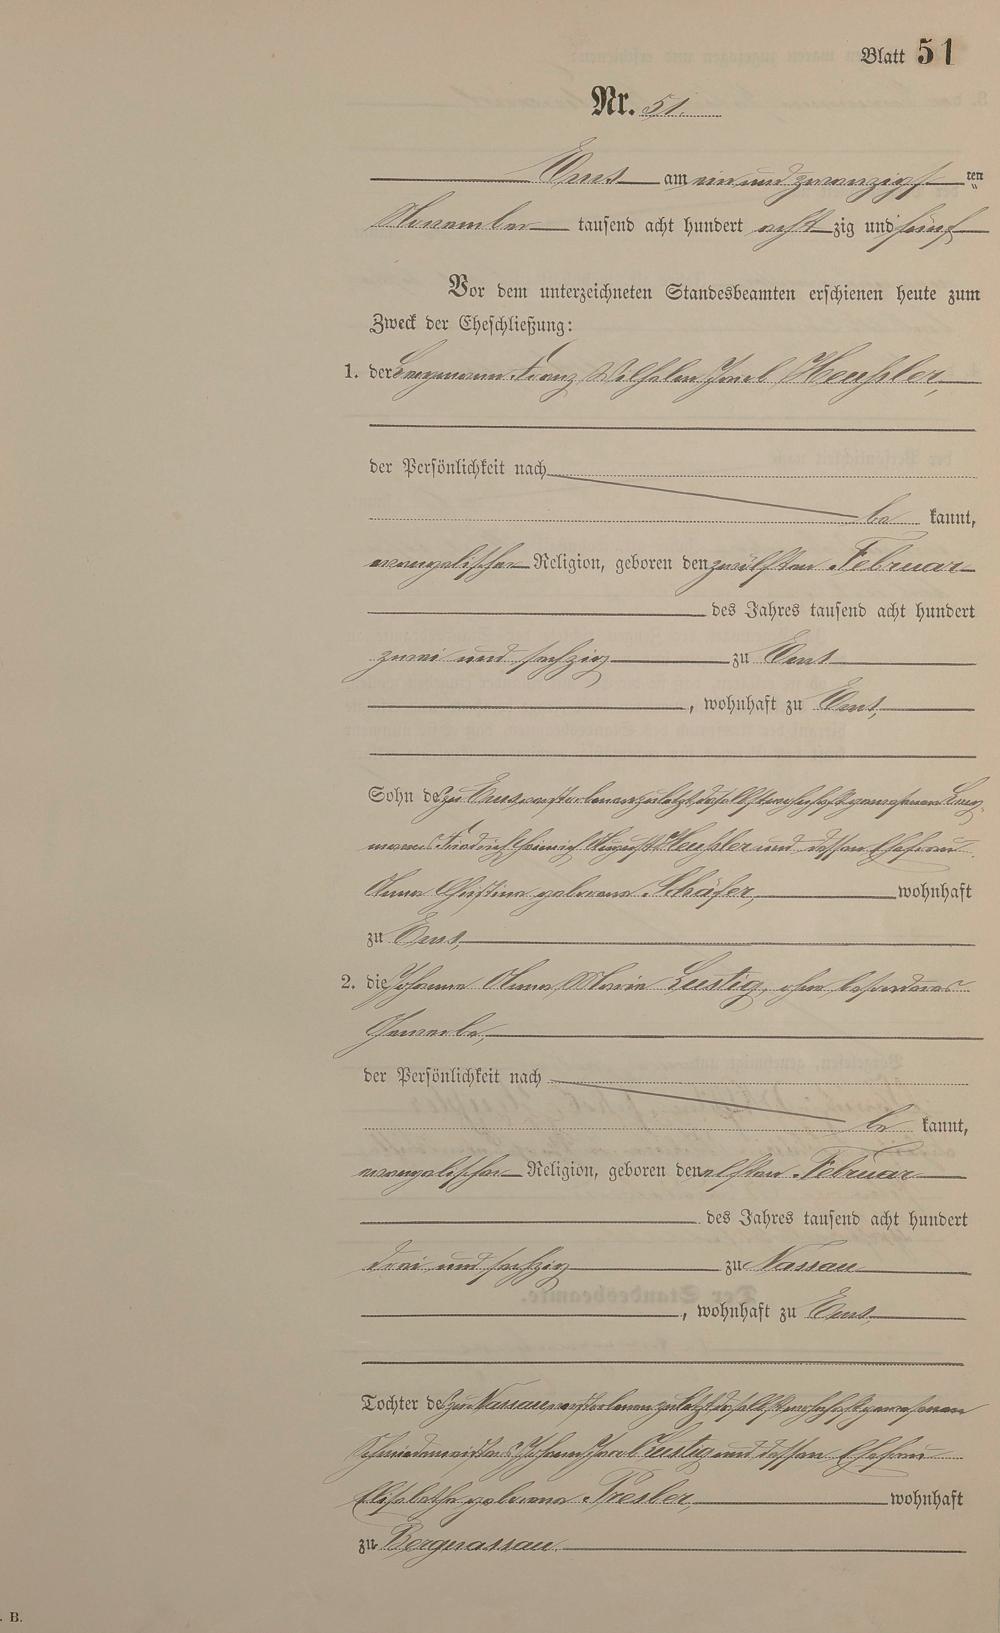 Blatt 51
Nr. 51.
Ems am ein und zwanzigst ten
November tausend acht hundert acht zig und fünf
Vor dem unterzeichneten Standesbeamten erschienen heute zum
Zweck der Eheschließung:
1. der Bergmann Franz Wilhelm Jacob Heußler,
der Persönlichkeit nach
be kannt,
evangelischer Religion, geboren den zwölften Februar
des Jahres tausend acht hundert
zwei und sechzig zu Ems
, wohnhaft zu Ems,
Sohn des zu Ems verstorbenen zuletzt daselbst wohnhaft gewesenen Berg-
manns Friedrich Heinrich August Heußler und dessen Ehefrau
Anna Christina geborene Schäfer, wohnhaft
zu Ems,
2. die Johanne Anna Maria Lustig, ohne besonderes
Gewerbe,
der Persönlichkeit nach
be kannt,
evangelischer Religion, geboren den elften Februar
des Jahres tausend acht hundert
drei und sechzig zu Nassau
, wohnhaft zu Ems,
Tochter des zu Nassau verstorbenen zuletzt daselbst wohnhaft gewesenen
Schmiedmeisters Johann Jacob Lustig und dessen Ehefrau
Elisabethe geborene Presber, wohnhaft
zu Bergnassau.
. B.